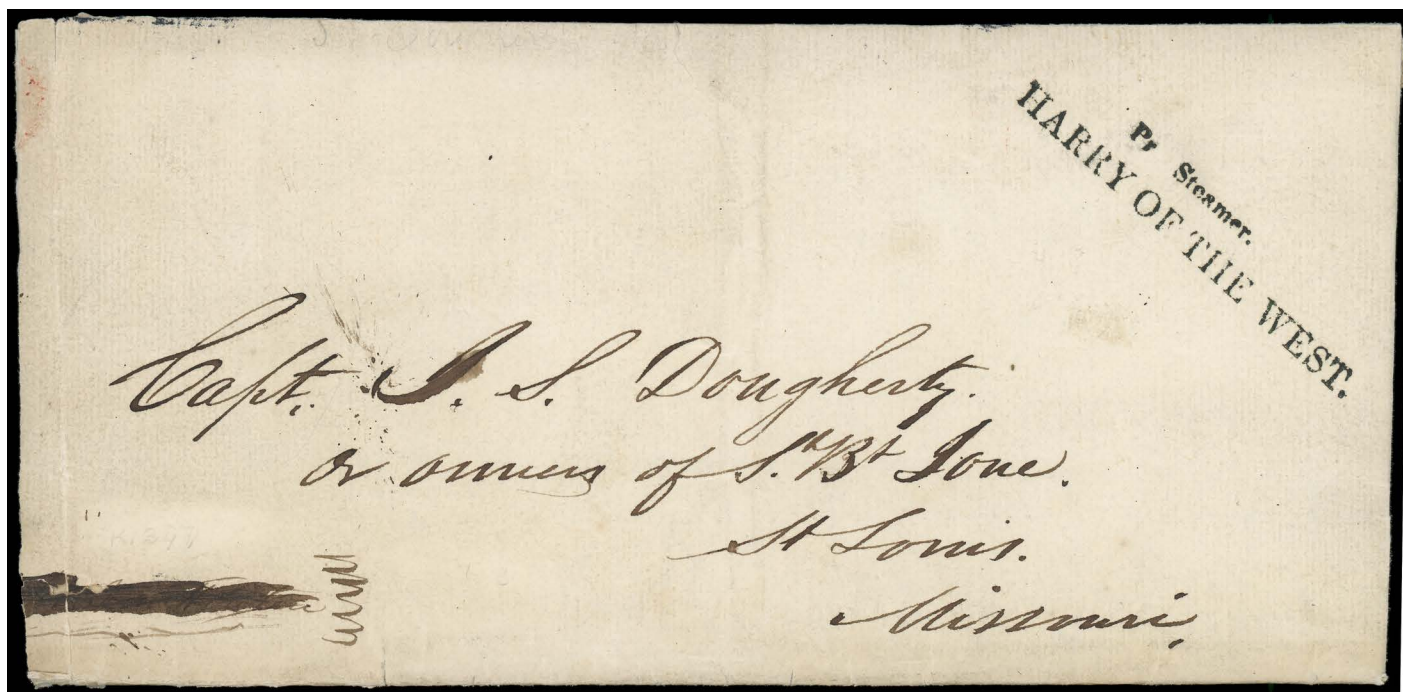 Pr Steamer.
HARRY OF THE WEST.
Capt. J. S. Dougherty.
or owners of St. Bt Ione.
St Louis.
Missouri,